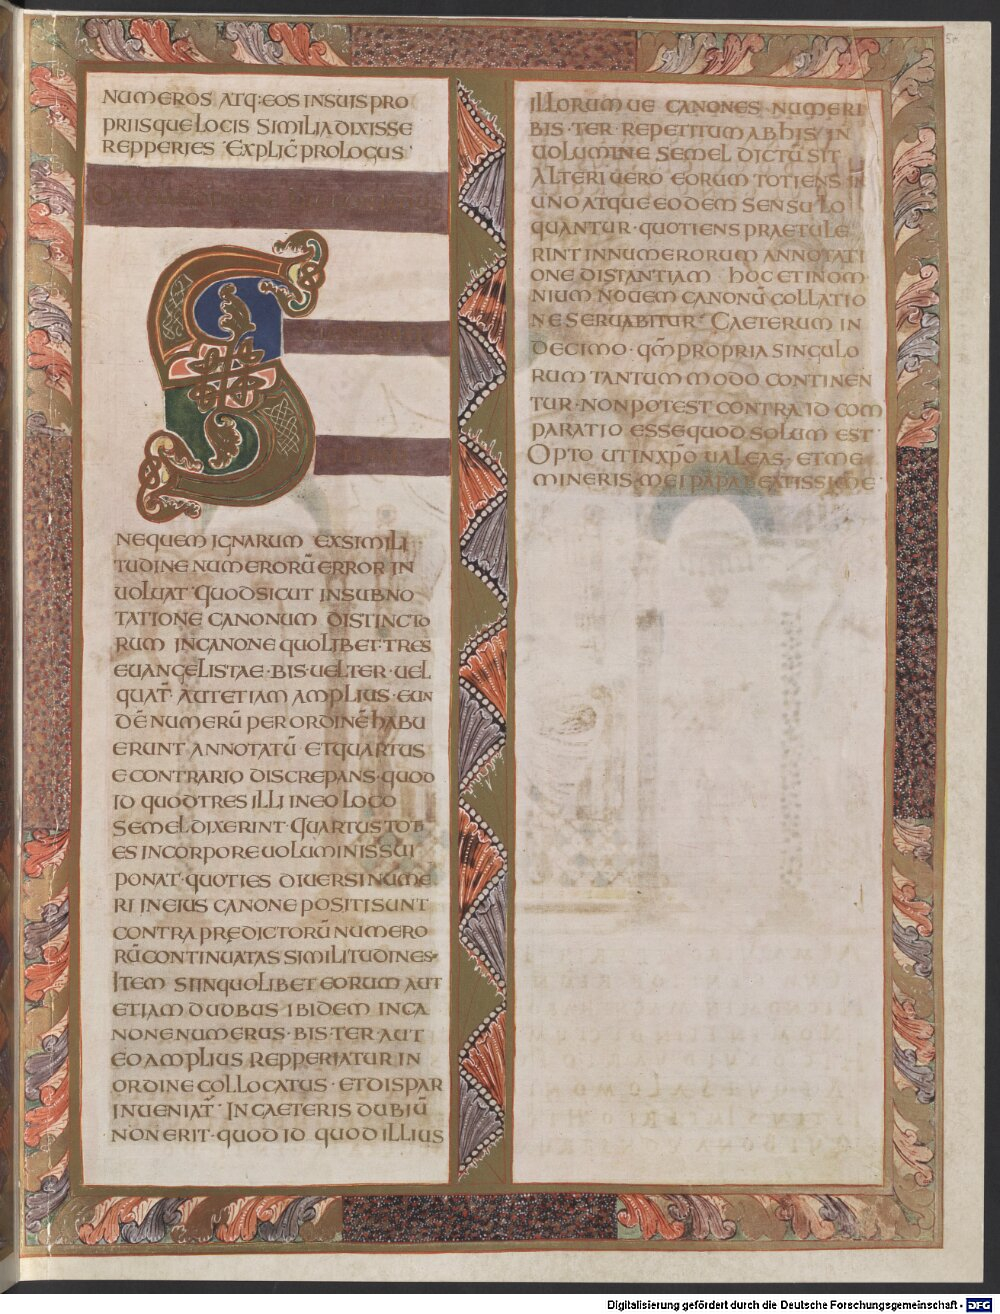 NUMEROS ATQ:EOS INSUIS PRO
PRIISQUE LOCIS SIMILIA DIXISSE
REPPERIES EXPLIC̄ PROLOGUS
S
NEQUEM IGNARUM EXSIMILI
TUDINE NUMERORŪ ERROR IN
UOLUAT QUODSICUT INSUBNO
TATIONE CANONUM DISTINCTO
RUM INCANONE QUOLIBET·TRES
EUANGELISTAE·BIS·UELTER·UEL
QUAT̄ AUTETIAM AMPLIUS·EUN
DĒ NUMERŪ PER ORDINĒ HABU
ERUNT ANNOTATŪ ETQUARTUS
E CONTRARIO DISCREPANS·QUOD
ID QUODTRES ILLI INEO LOCO
SEMEL DIXERINT·QUARTUS TOB
ES INCORPORE UOLUMINIS SUI
PONAT·QUOTIES DIUERSI NUME
RI INEIUS CANONE POSITI SUNT
CONTRA PREDICTORŪ NUMERO
RŪ CONTINUATAS SIMILITUDINES·
ITEM SI INQUOLIBET EORUM AUT
ETIAM DUOBUS IBIDEM INCA
NONE NUMERUS·BIS·TER AUT
EO AMPLIUS REPPERIATUR IN
ORDINE COLLOCATUS·ETDISPAR
INUENIAT̄ IN CAETERIS DUBIŪ
NON ERIT·QUOD ID QUOD ILLIUS
ILLORUM UE CANONES·NUMERI
BIS·TER REPETITUM AB HIS IN
UOLUMINE SEMEL DICTŪ SIT
ALTERI UERO EORUM TOTIENS IN
UNO ATQUE EODEM SENSU LO
QUANTUR·QUOTIENS PRAETULE
RINT INNUMERORUM ANNOTATI
ONE DISTANTIAM HOC ET INOM
NIUM NOUEM CANONŪ COLLATIO
NE SERUABITUR CAETERUM IN
DECIMO·QM̄ PROPRIA SINGULO
RUM TANTUM MODO CONTINEN
TUR·NON POTEST CONTRA ID COM
PARATIO ESSE QUOD SOLUM EST
OPTO UT INXPO UALEAS·ET ME
MINERIS·MEI PAPA BEATISSIME
Digitalisierung gefördert durch die Deutsche Forschungsgemeinschaft - DFG